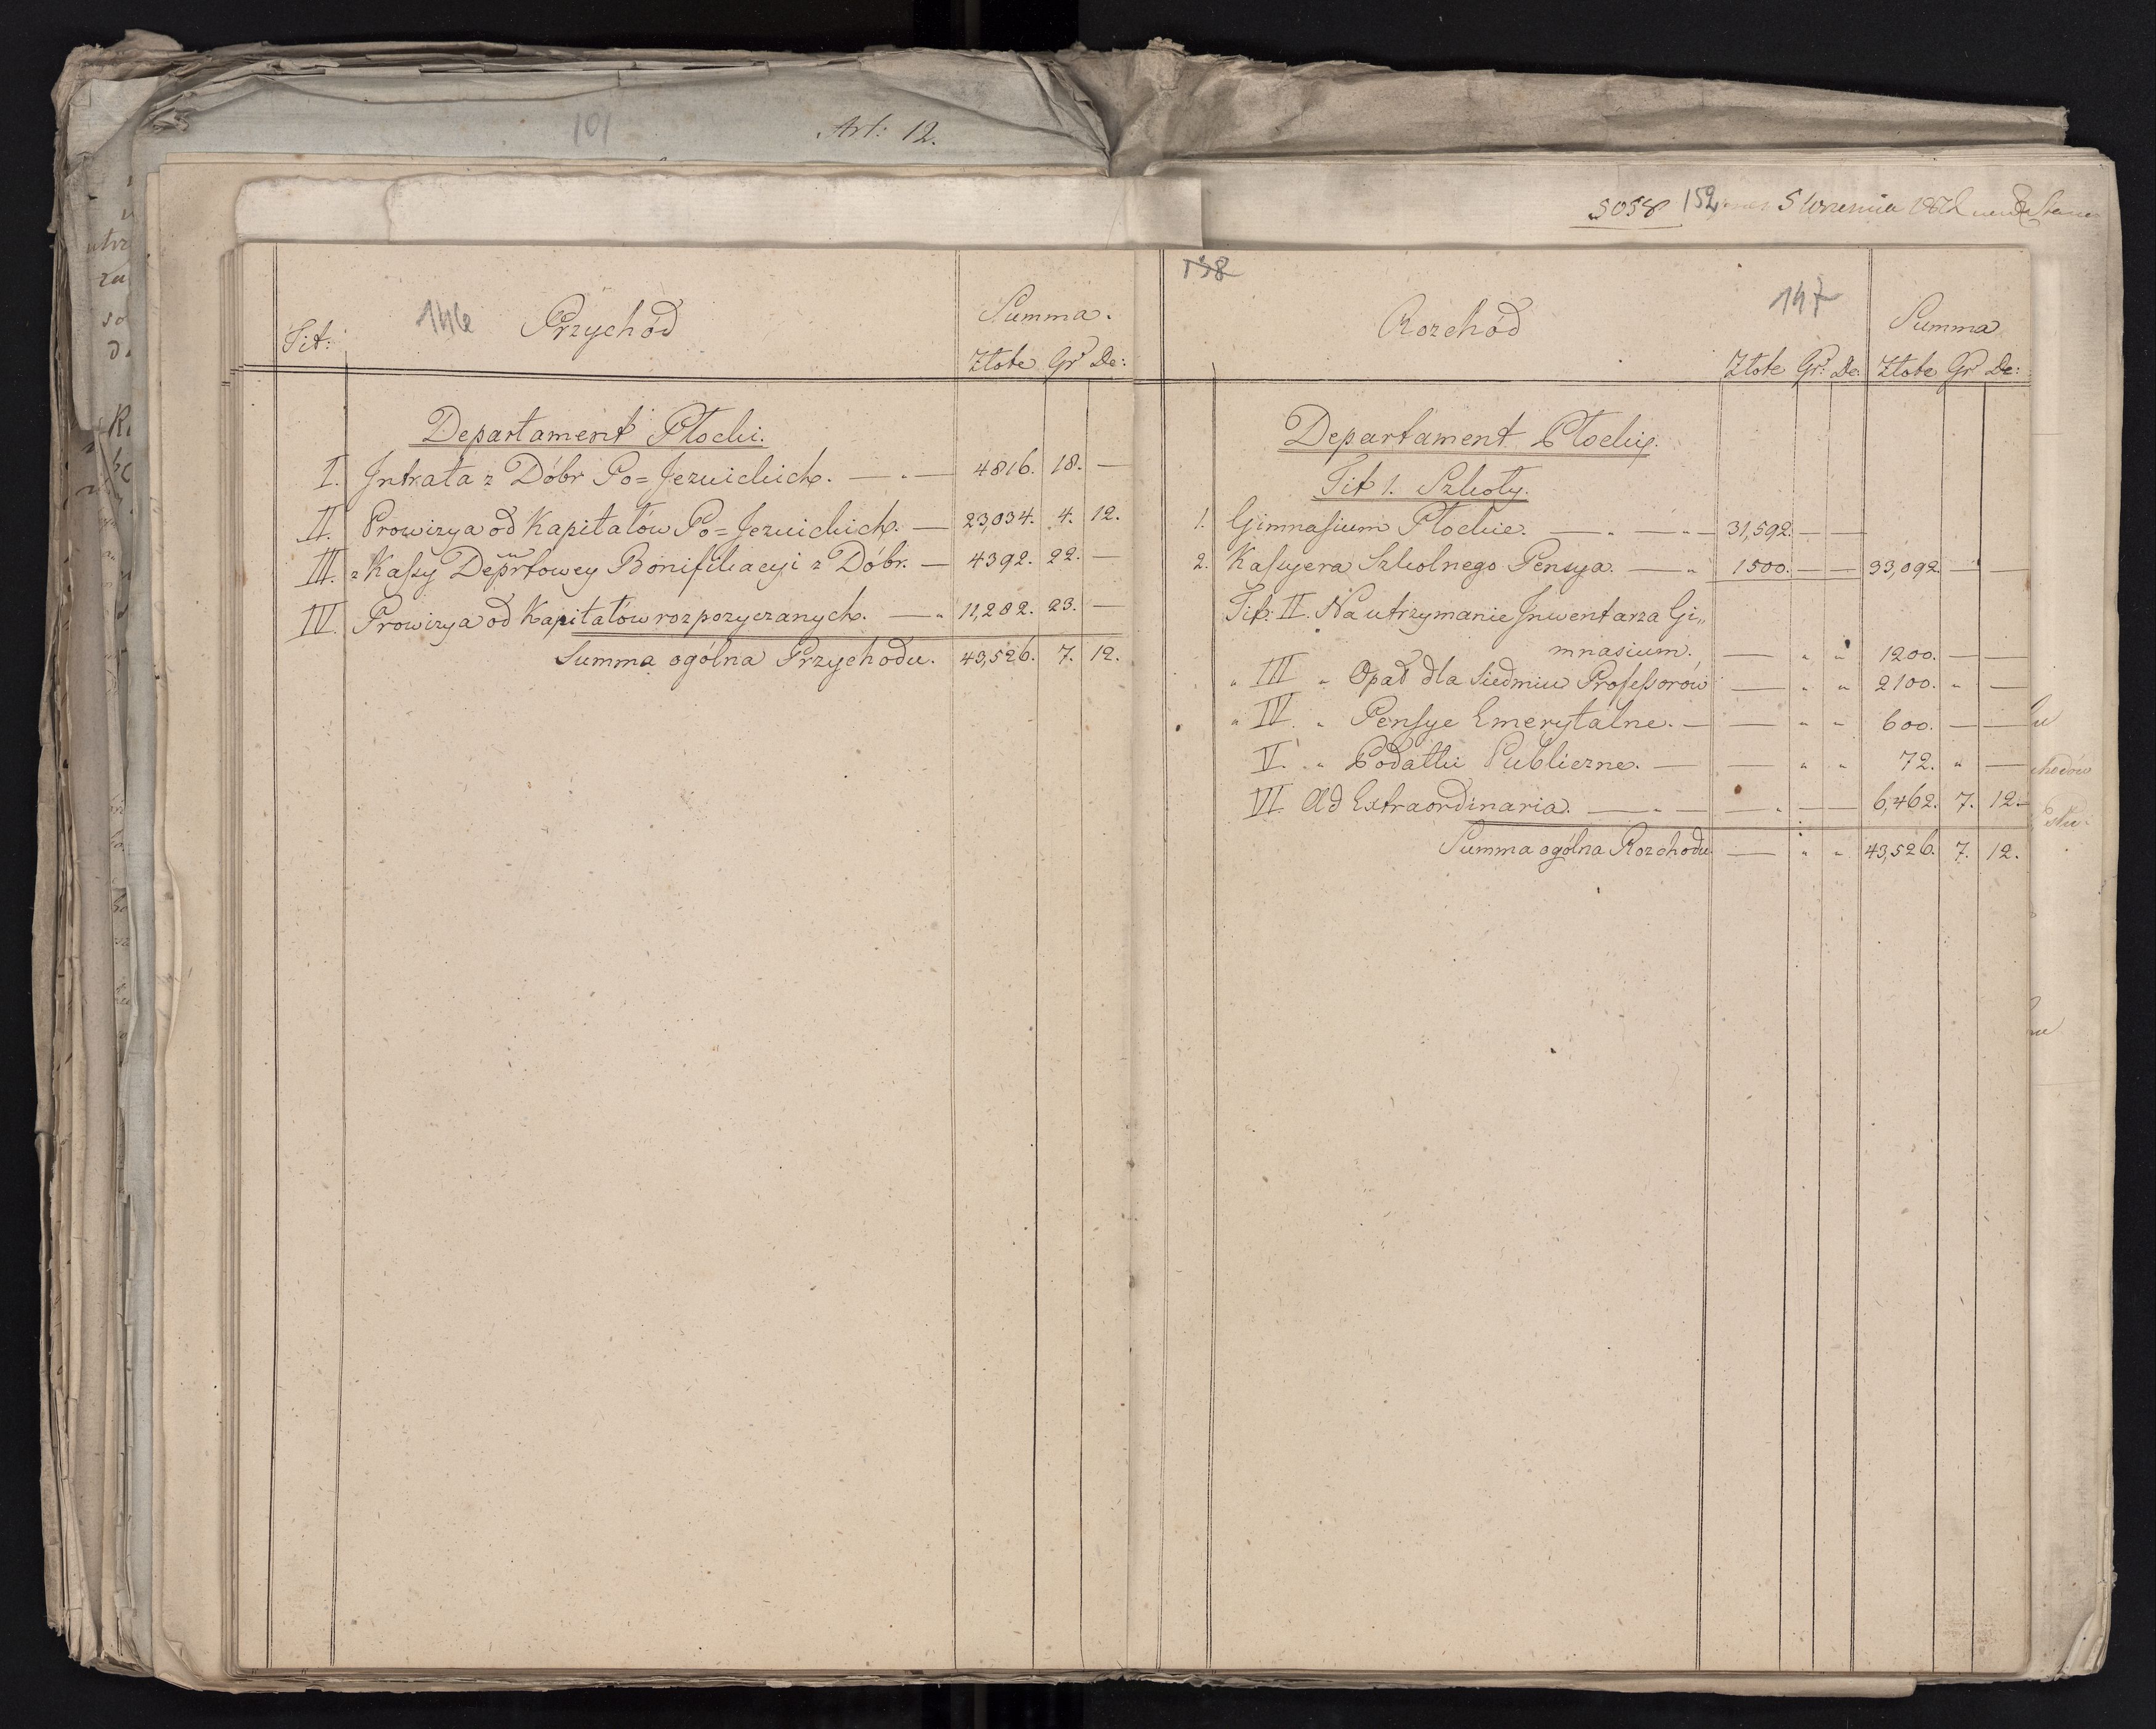 101
Art: 12.
5058
152
5 Wrzesnia
146
Tit:
Przychód
Summa.
Złote Gr. De:
Departament Płocki.
I. Jntrata z Dóbr Po=Jezuickich. — „ — 4816. 18. —
II. Prowizya od Kapitałów Po=Jezuickich. — 23,034. 4. 12.
III. z Kassy Deprtowey Bonifikacyi z Dóbr. — 4392. 22. —
IV. Prowizya od Kapitałów rozpozyczanych. — „ 11,282. 23. —
Summa ogólna Przychodu. 43,526. 7. 12.
138
147
Rozchód
Summa
Złote Gr: De: Złote Gr De:
Departament Płocki.
Tit 1. Szkoły.
1. Gimnasium Płockie. — „ — „ — 31,592. — —
2. Kassyera Szkolnego Pensya. — „ 1500. — — 33,092. — —
Tit: II. Na utrzymanie Jnwentarza Gi„
mnasium. — „ „ 1200. — —
„ III „ Opał dla siedmiu Professorów — „ „ 2100. „ —
„ IV. „ Pensye Emerytalne. — — „ „ 600. — —
V. „ Podatki Publiczne. — — „ „ 72. „ —
VI. Ad Extraordinaria. — „ — — „ — — 6,462. 7. 12.
Summa ogólna Rozchodu — „ „ 43,526. 7. 12.